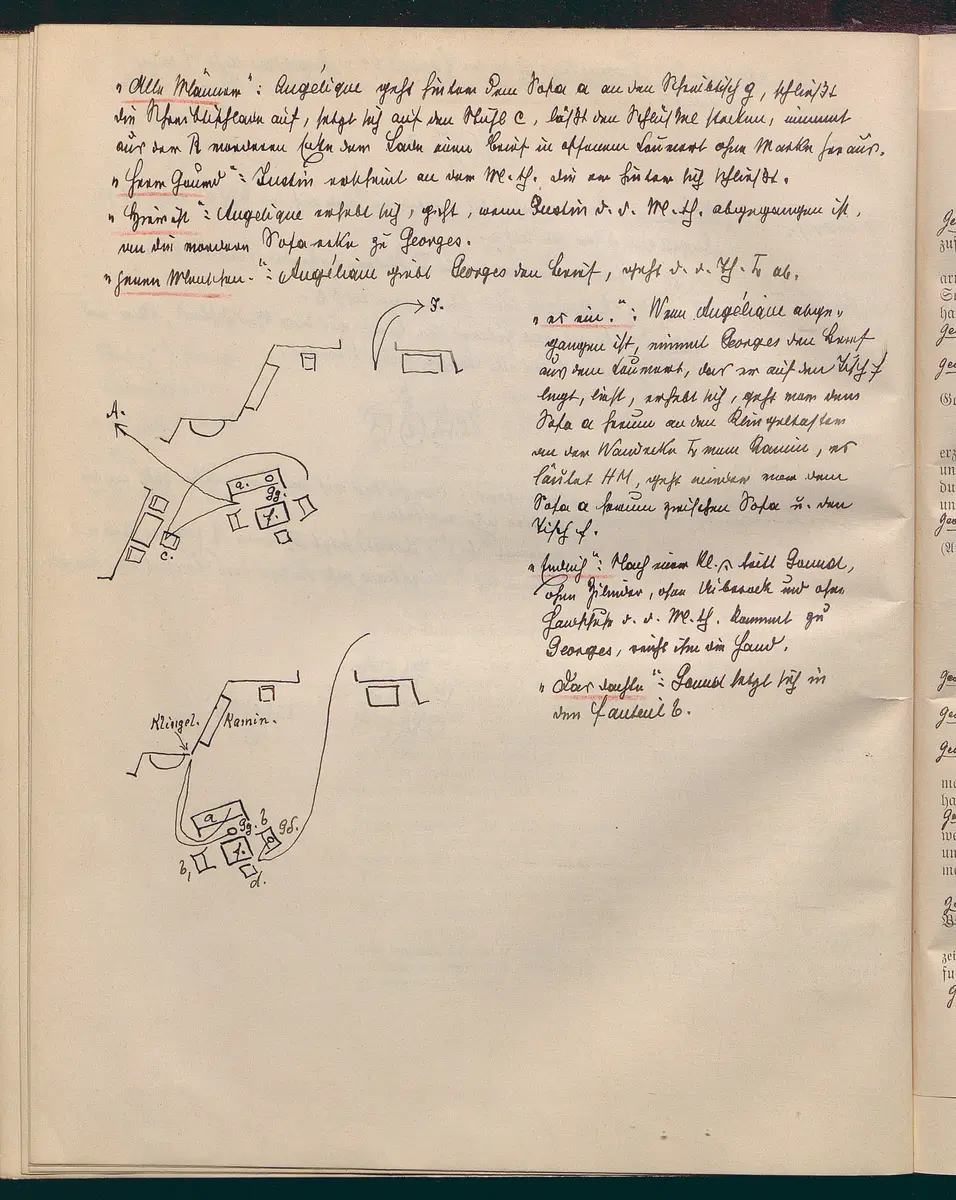 „Alle Männer“: Angélique geht hinter dem Sofa a an den Schreibtisch g, schließt
die Schreibtischlade auf, setzt sich auf den Stuhl c, läßt den Schlüssel stecken, nimmt
aus der R vorderen Ecke der Lade einen Brief in offenem Couvert ohne Marke heraus.
„Herr Gound“: Justin erscheint an der M.th. die er hinter sich schließt.
„Angélique erhebt sich, geht, wenn Justin d. d. M.th. abgegangen ist,
an die vordere Sofaecke zu Georges.
Menschen.“: Angélique giebt Georges den Brief, geht d. d. Th. L ab.
J.
A.
a.
gg.
f.
c.
„es ein.“: Wenn Angélique abge-
gangen ist, nimmt Georges den Brief
aus dem Couvert, das er auf den Tisch f
legt, liest, erhebt sich, geht vor dem
Sofa a herum an den Klingeltaster
an der Wandecke L vom Kamin, es
läutet HM, geht wieder vor dem
Sofa a herum zwischen Sofa u. den
Tisch f.
„Endlich“: Nach einer Kl. tritt Gound,
ohne Zilinder, ohne Überrock und ohne
Handschuhe d. d. M.th. kommt zu
Georges, reicht ihm die Hand.
„Das dachte“: Gound setzt sich in
den Fauteuil b.
Klingel.
Kamin.
a
gg.
b
gd.
b,
f.
d.
Ge
zuf
Ge
erz
un
du
un
Ge
me
ha
we
un
me
zei
fu